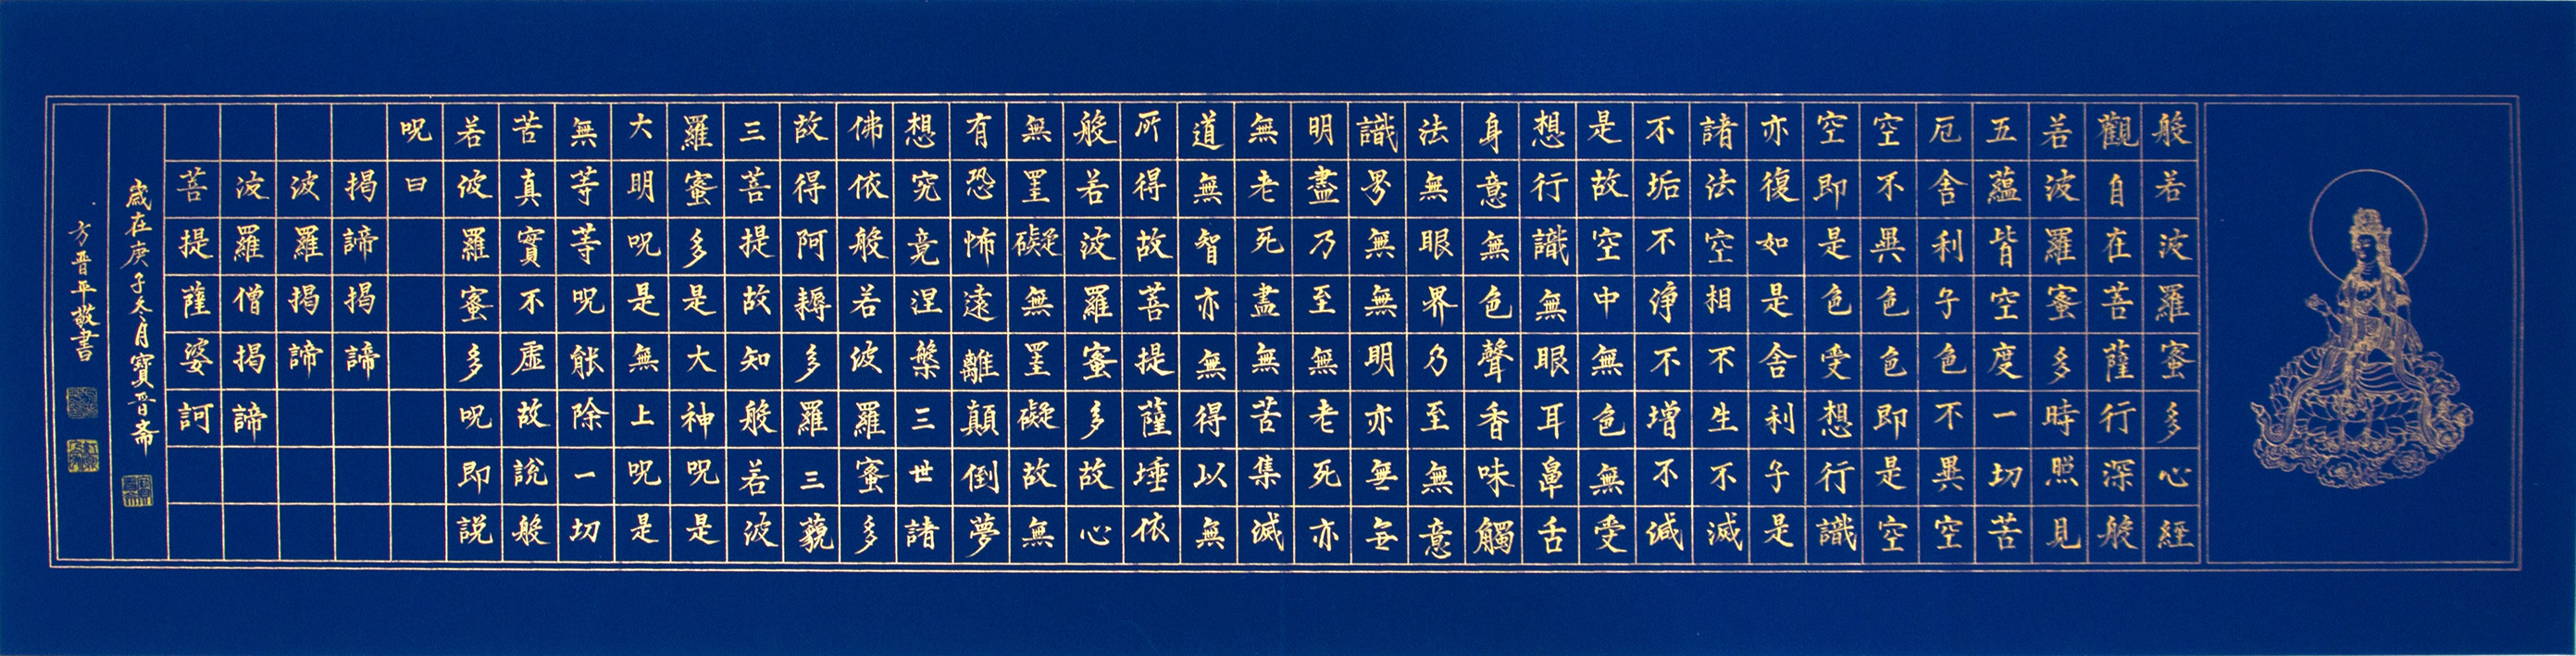 般若波羅蜜多心經
觀自在菩薩行深般
若波羅蜜多時照見
五蘊皆空度一切苦
厄舍利子色不異空
空不異色色即是空
空即是色受想行識
亦復如是舍利子是
諸法空相不生不滅
不垢不淨不增不減
是故空中無色無受
想行識無眼耳鼻舌
身意無色聲香味觸
法無眼界乃至無意
識界無無明亦無無
明盡乃至無老死亦
無老死盡無苦集滅
道無智亦無得以無
所得故菩提薩埵依
般若波羅蜜多故心
無罣礙無罣礙故無
有恐怖遠離顛倒夢
想究竟涅槃三世諸
佛依般若波羅蜜多
故得阿耨多羅三藐
三菩提故知般若波
羅蜜多是大神呪是
大明呪是無上呪是
無等等呪能除一切
苦真實不虛故說般
若波羅蜜多呪即説
呪曰
揭諦揭諦
波羅揭諦
波羅僧揭諦
菩提薩婆訶
歲在庚子冬月寶晉齋
方晉平敬書